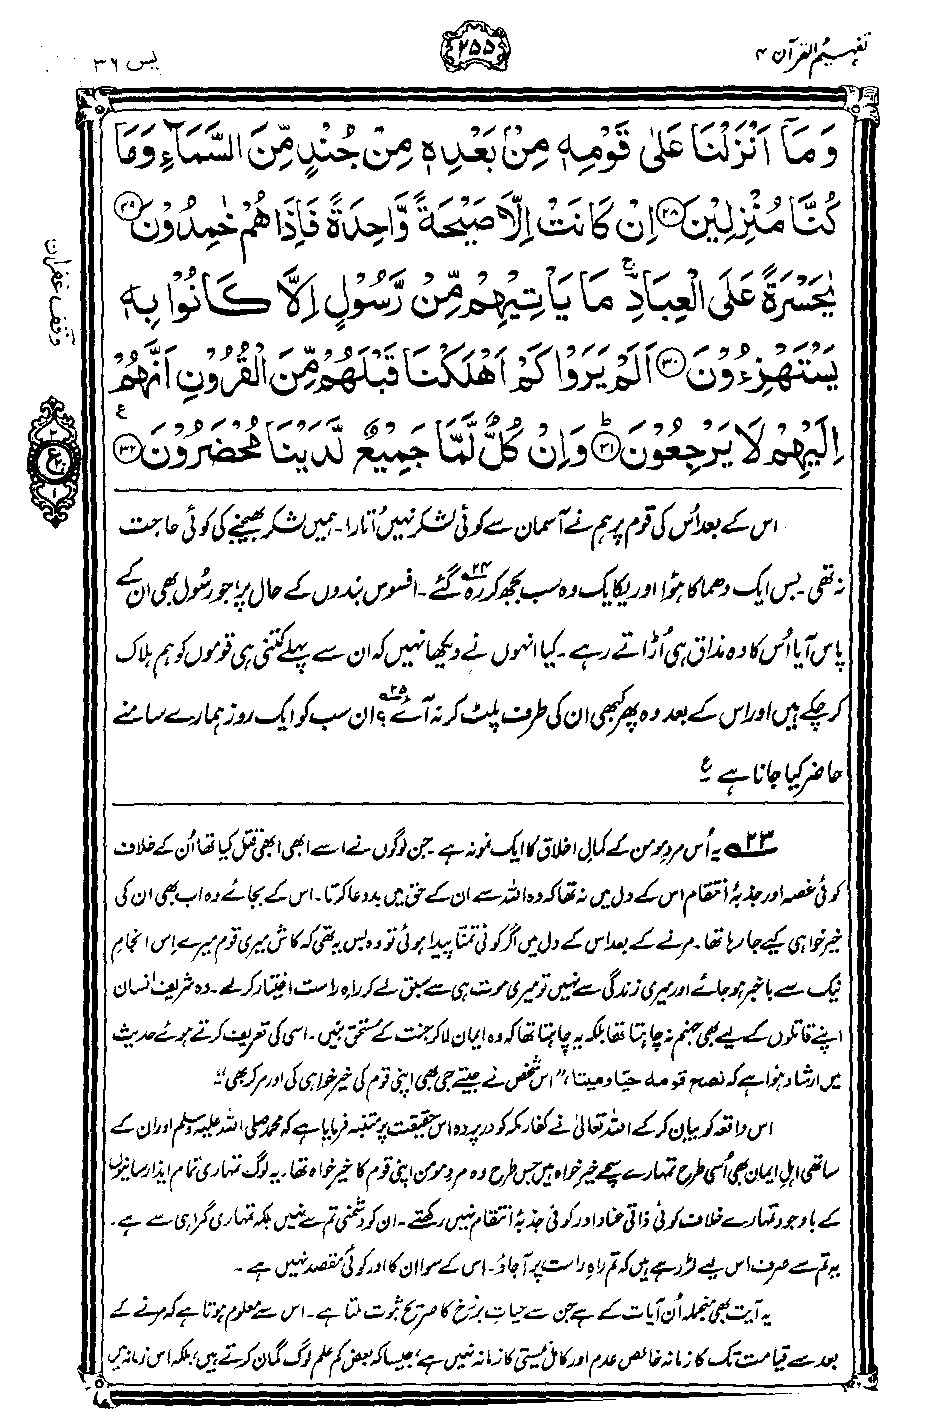 تفہیم القرآن ۴
۲۵۵
یٰس ۳۶
وَمَآ اَنْزَلْنَا عَلٰی قَوْمِهٖ مِنْۢ بَعْدِهٖ مِنْ جُنْدٍ مِّنَ السَّمَآءِ وَمَا
كُنَّا مُنْزِلِيْنَ ۲۸ اِنْ كَانَتْ اِلَّا صَيْحَةً وَّاحِدَةً فَاِذَا هُمْ خٰمِدُوْنَ ۲۹
يٰحَسْرَةً عَلَى الْعِبَادِ ۚ مَا يَاْتِيْهِمْ مِّنْ رَّسُوْلٍ اِلَّا كَانُوْا بِهٖ
يَسْتَهْزِءُوْنَ ۳۰ اَلَمْ يَرَوْا كَمْ اَهْلَكْنَا قَبْلَهُمْ مِّنَ الْقُرُوْنِ اَنَّهُمْ
اِلَيْهِمْ لَا يَرْجِعُوْنَ ۳۱ وَاِنْ كُلٌّ لَّمَّا جَمِيْعٌ لَّدَيْنَا مُحْضَرُوْنَ ۳۲ ع
وقف غفران
اس کے بعد اُس کی قوم پر ہم نے آسمان سے کوئی لشکر نہیں اُتارا۔ ہمیں لشکر بھیجنے کی کوئی حاجت
نہ تھی۔ بس ایک دھماکا ہوا اور یکایک وہ سب بجھ کر رہ گئے۲۴۔ افسوس بندوں کے حال پر، جو رسُول بھی ان کے
پاس آیا اُس کا وہ مذاق ہی اُڑاتے رہے۔ کیا انہوں نے دیکھا نہیں کہ ان سے پہلے کتنی ہی قوموں کو ہم ہلاک
کر چکے ہیں اور اس کے بعد وہ پھر کبھی ان کی طرف پلٹ کر نہ آئے۲۵؟ ان سب کو ایک روز ہمارے سامنے
حاضر کیا جانا ہے۔ ع
۲۳ یہ اُس مردِ مومن کے کمالِ اخلاق کا ایک نمونہ ہے۔ جن لوگوں نے اسے ابھی ابھی قتل کیا تھا اُن کے خلاف
کوئی غصہ اور جذبۂ انتقام اس کے دل میں نہ تھا کہ وہ اللہ سے ان کے حق میں بددعا کرتا۔ اس کے بجائے وہ اب بھی ان کی
خیر خواہی کیے جا رہا تھا۔ مرنے کے بعد اس کے دل میں اگر کوئی تمنا پیدا ہوئی تو وہ بس یہ تھی کہ کاش میری قوم میرے اِس انجامِ
نیک سے باخبر ہو جائے اور میری زندگی سے نہیں تو میری موت ہی سے سبق لے کر راہِ راست اختیار کر لے۔ وہ شریف انسان
اپنے قاتلوں کے لیے بھی جہنم نہ چاہتا تھا بلکہ یہ چاہتا تھا کہ وہ ایمان لا کر جنت کے مستحق بنیں۔ اسی کی تعریف کرتے ہوئے حدیث
میں ارشاد ہوا ہے کہ نصح قومہ حیًّا ومیتًا، "اس شخص نے جیتے جی بھی اپنی قوم کی خیر خواہی کی اور مر کر بھی"۔
اس واقعہ کو بیان کر کے اللہ تعالیٰ نے کفارِ مکہ کو درپردہ اس حقیقت پر متنبہ فرمایا ہے کہ محمد صلی اللہ علیہ وسلم اور ان کے
ساتھی اہلِ ایمان بھی اُسی طرح تمہارے سچے خیر خواہ ہیں جس طرح وہ مردِ مومن اپنی قوم کا خیر خواہ تھا۔ یہ لوگ تمہاری تمام ایذا رسانیوں
کے باوجود تمہارے خلاف کوئی ذاتی عناد اور کوئی جذبۂ انتقام نہیں رکھتے۔ ان کو دشمنی تم سے نہیں بلکہ تمہاری گمراہی سے ہے۔
یہ تم سے صرف اس لیے لڑ رہے ہیں کہ تم راہِ راست پر آ جاؤ۔ اس کے سوا ان کا اور کوئی مقصد نہیں ہے۔
یہ آیت بھی منجملہ اُن آیات کے ہے جن سے حیاتِ برزخ کا صریح ثبوت ملتا ہے۔ اس سے معلوم ہوتا ہے کہ مرنے کے
بعد سے قیامت تک کا زمانہ خالص عدم اور کامل نیستی کا زمانہ نہیں ہے، جیسا کہ بعض کم علم لوگ گمان کرتے ہیں، بلکہ اس زمانہ میں